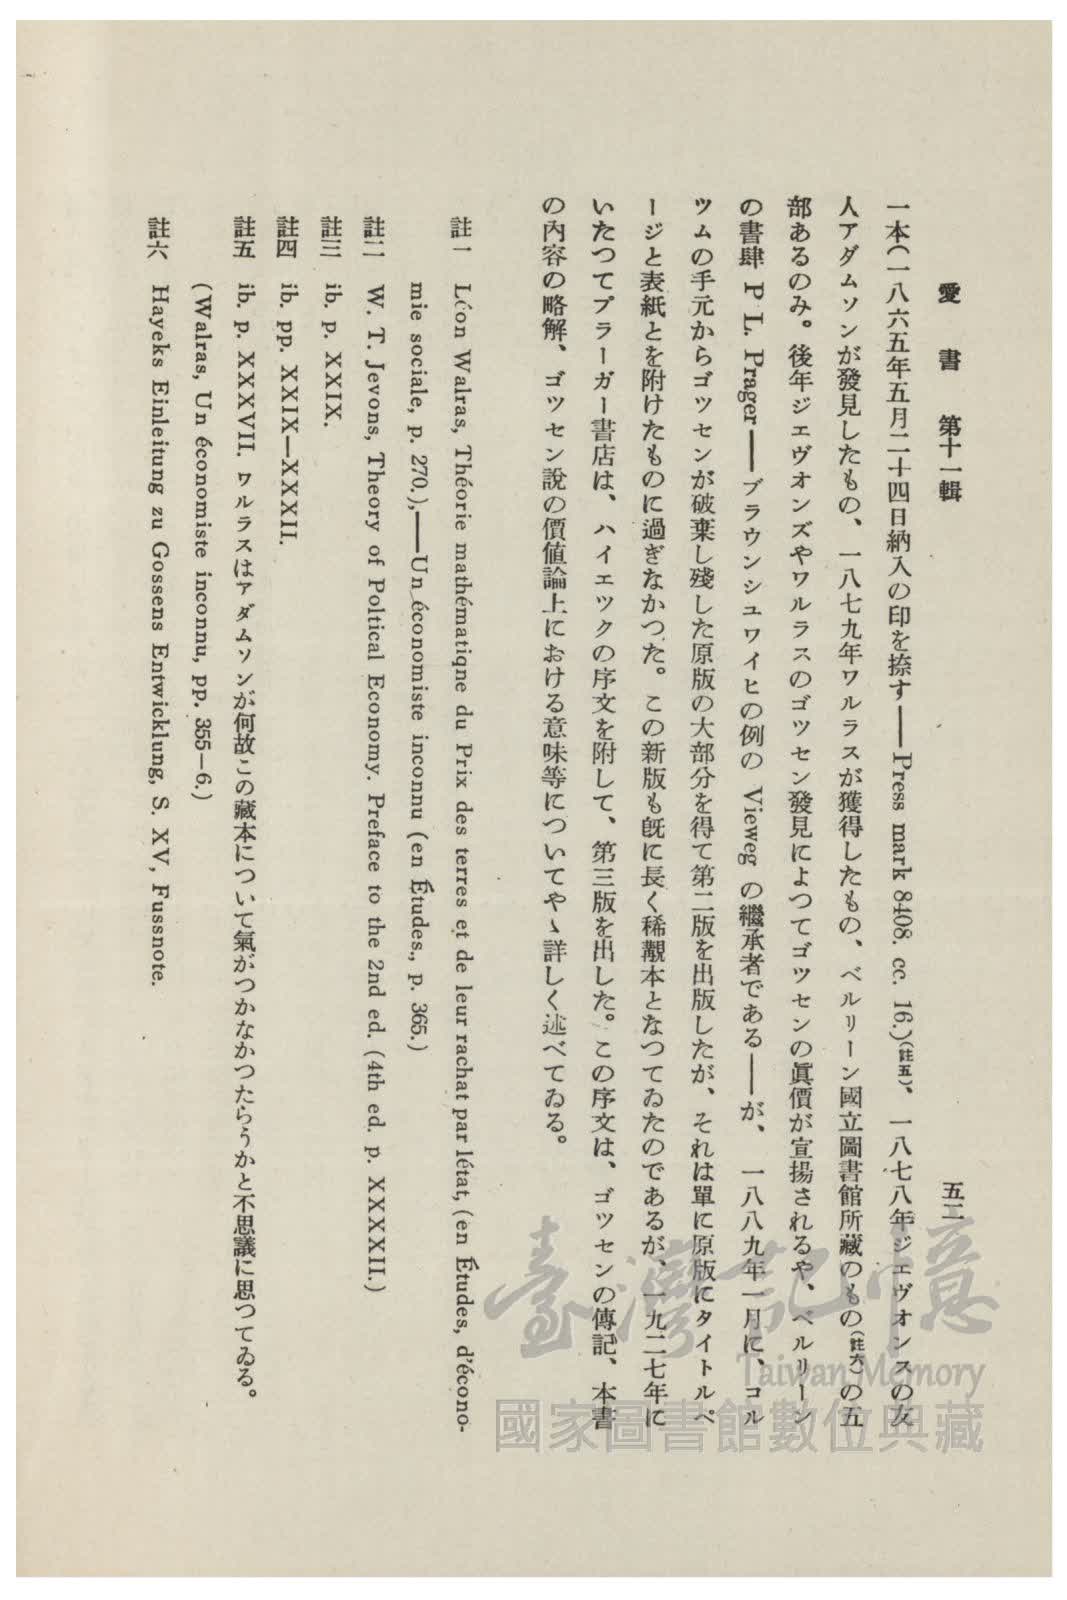 愛書　第十一輯
五二
一本(一八六五年五月二十四日納入の印を捺す――Press mark 8408. cc. 16.)(註五)、一八七八年ジエヴオンスの友
人アダムソンが發見したもの、一八七九年ワルラスが獲得したもの、ベルリーン國立圖書館所藏のもの(註六)の五
部あるのみ。後年ジエヴオンズやワルラスのゴツセン發見によつてゴツセンの眞價が宣揚されるや、ベルリーン
の書肆 P L. Prager――ブラウンシユワイヒの例の Vieweg の繼承者である――が、一八八九年一月に、コル
ツムの手元からゴツセンが破棄し殘した原版の大部分を得て第二版を出版したが、それは單に原版にタイトルペ
ージと表紙とを附けたものに過ぎなかつた。この新版も旣に長く稀覯本となつてゐたのであるが、一九二七年に
いたつてプラーガー書店は、ハイエツクの序文を附して、第三版を出した。この序文は、ゴツセンの傳記、本書
の內容の略解、ゴツセン說の價値論上における意味等についてやゝ詳しく述べてゐる。
註一　Léon Walras, Théorie mathématiqne du Prix des terres et de leur rachat par létat, (en Études, d'écono-
mie sociale, p. 270.),――Un économiste inconnu (en Études,, p. 365.)
註二　W. T. Jevons, Theory of Poltical Economy. Preface to the 2nd ed. (4th ed. p. XXXXII.)
註三　ib. p. XXIX.
註四　ib. pp. XXIX―XXXII.
註五　ib. p. XXXVII. ワルラスはアダムソンが何故この藏本について氣がつかなかつたらうかと不思議に思つてゐる。
(Walras, Un économiste inconnu, pp. 355－6.)
註六　Hayeks Einleitung zu Gossens Entwicklung, S. XV, Fussnote.
臺灣記憶
Taiwan Memory
國家圖書館數位典藏